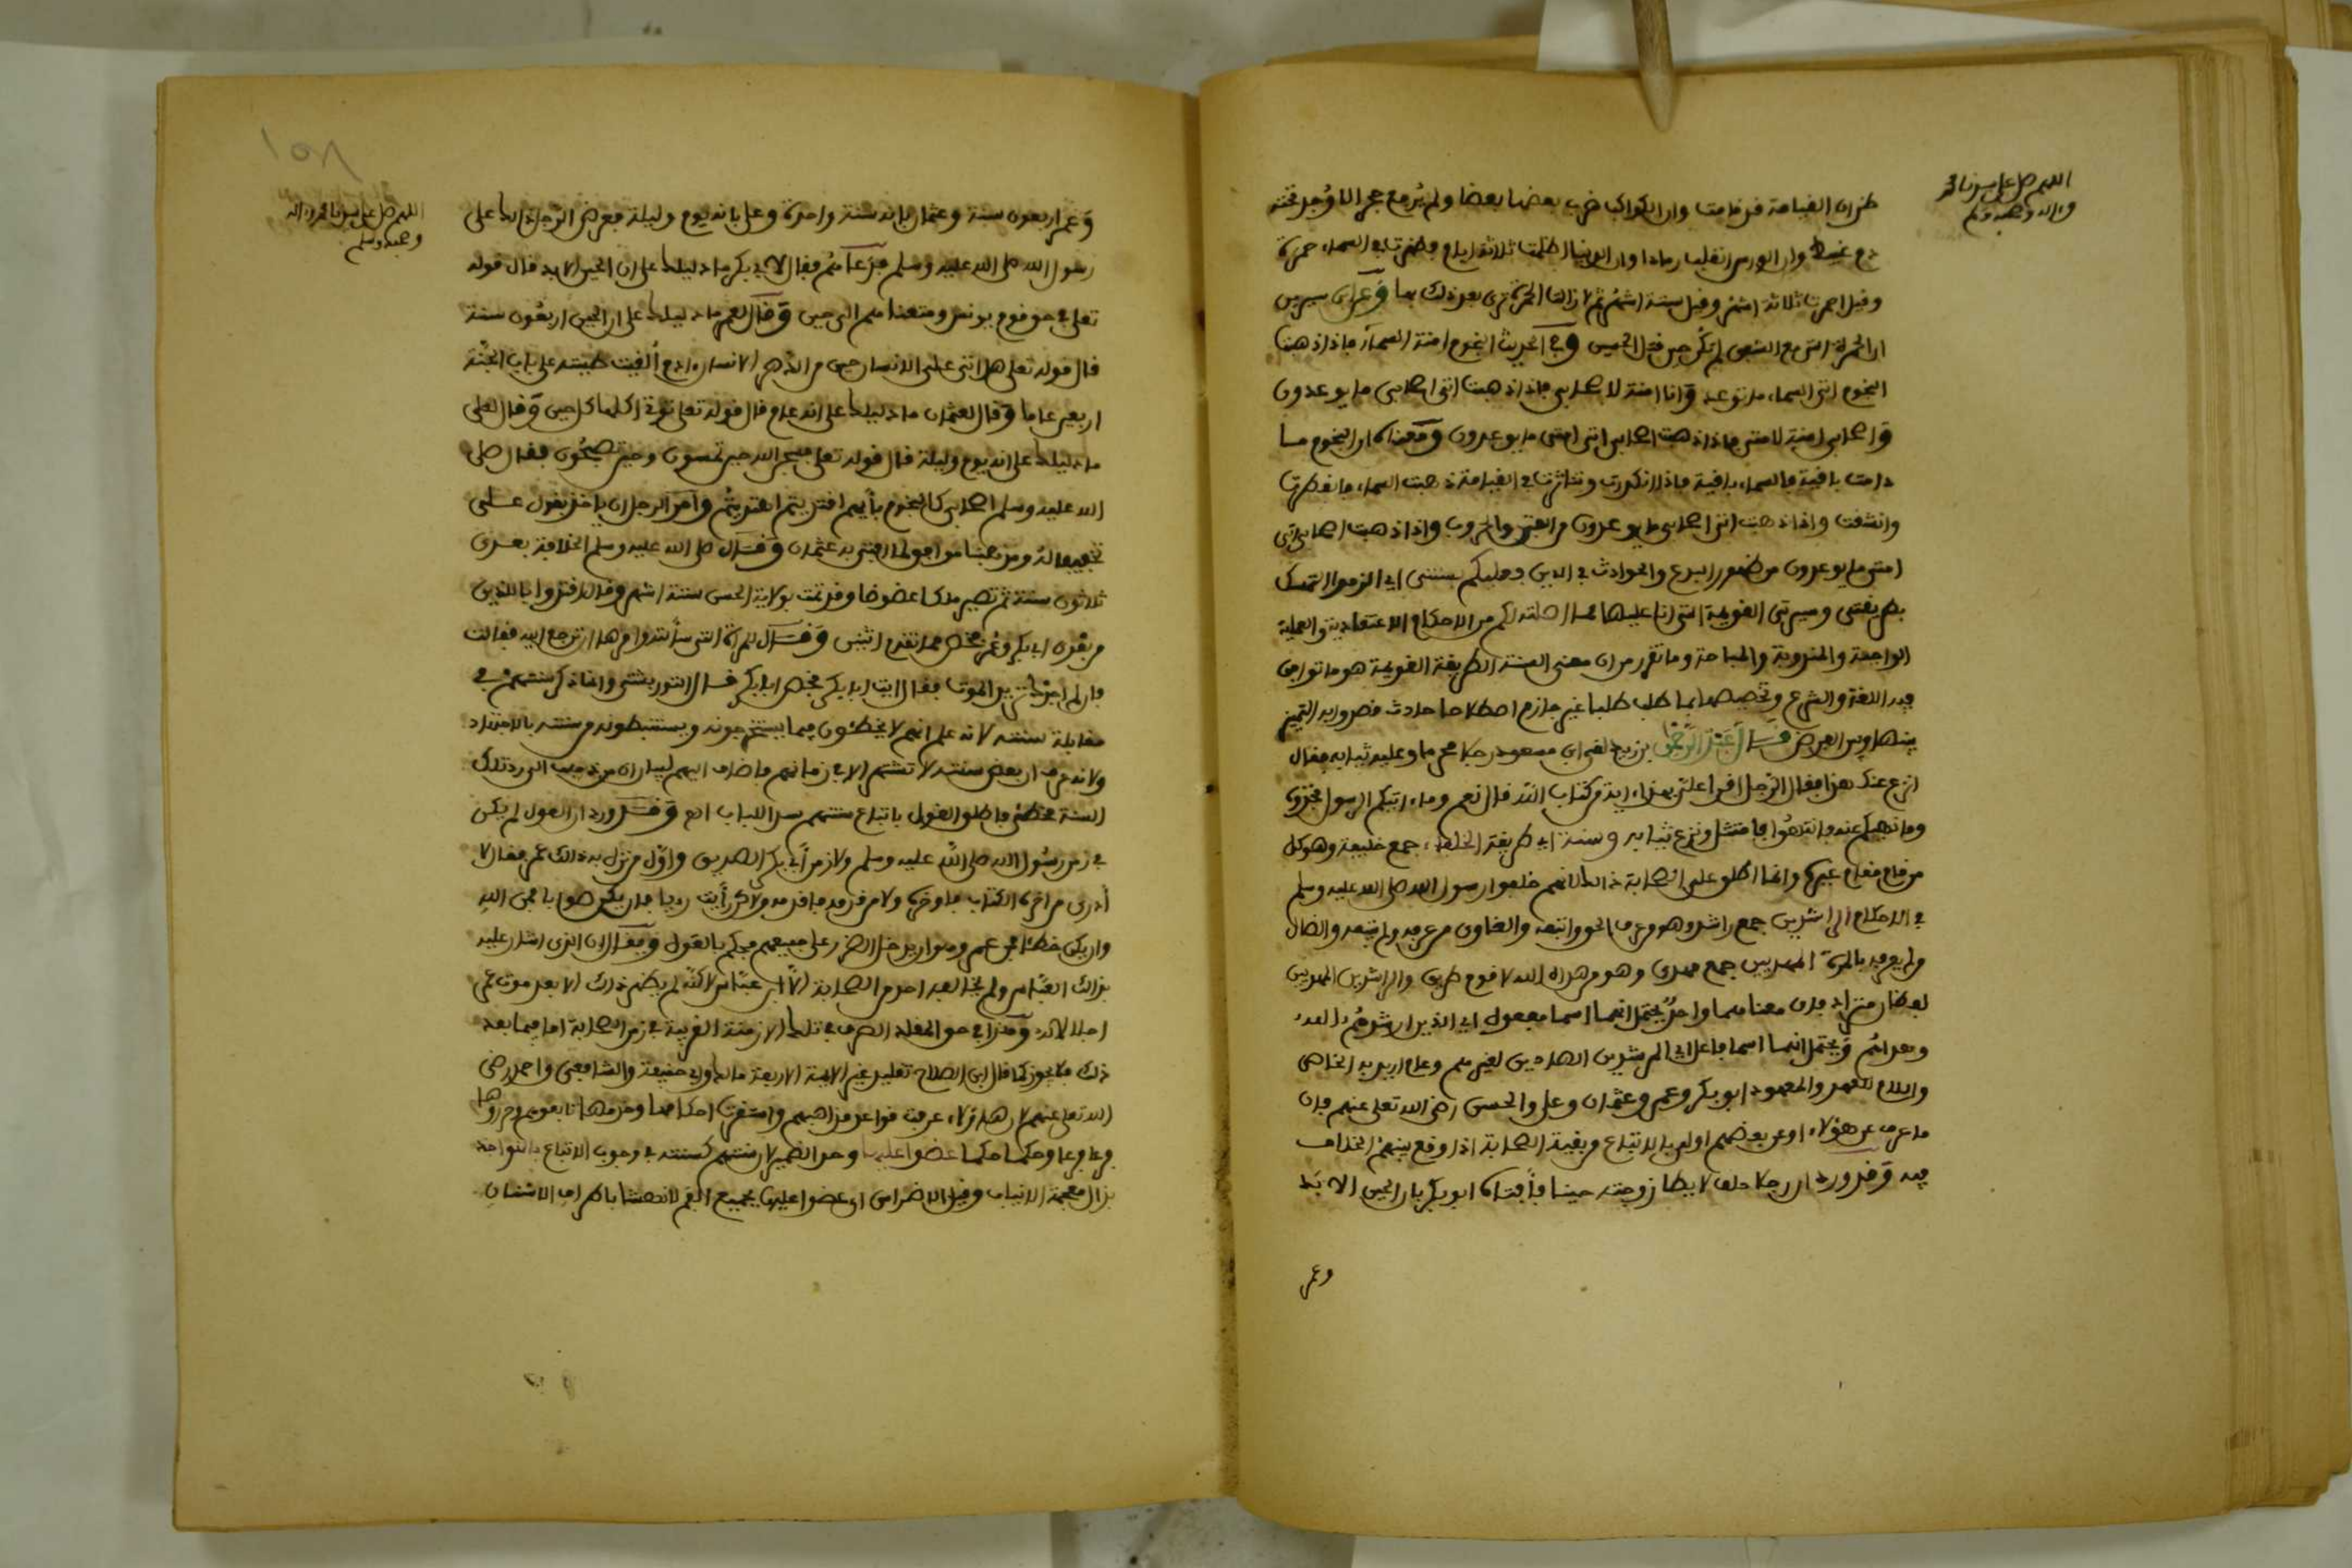 اللهم صل على سيدنا محمد
وءاله وصحبه وسلم
ظن ان القيامة قد قامت وان الكواكب ضرب بعضها بعضا ولم يرفع حجر الا وجد تحته
دم عبيط وان الورس انقلب رمادا وان الدنيا اظلمت ثلاثة ايام وظهرت في السماء حمرة
وقيل احمرت ثلاثة اشهر وقيل ستة اشهر ثم لا زالت الحمرة ترى بعد ذلك بها وعن ابن سيرين
ان الحمرة التي مع الشفق لم تكن حين قتل الحسين وفي الحديث النجوم امنة السماء فاذا ذهبت
النجوم اتى السماء ما توعد وانا امنة لاصحابي فاذا ذهبت اتى اصحابي ما يوعدون
واصحابي امنة لامتي فاذا ذهبت اصحابي اتى امتي ما يوعدون ومعناه ان النجوم ما
دامت باقية فالسماء باقية فاذا انكدرت وتناثرت في القيامة ذهبت السماء فانفطرت
وانشقت واذا ذهبت اتى اصحابي ما يوعدون من الفتن والحروب واذا ذهبت اصحابي اتى
امتي ما يوعدون من ظهور البدع والحوادث في الدين وعليكم بسنتي اي الزموا التمسك
بطريقتي وسيرتي القويمة التي انا عليها مما اصلته لكم من الاحكام الاعتقادية والعملية
الواجبة والمندوبة والمباحة وما تقرر من ان معنى السنة الطريقة القويمة هو ما تواجق
فيه اللغة والشرع وتخصيصها بما طلب طلبا غير جازم اصطلاحا حادث قصدوا به التمييز
بينها وبين الفرض قال عبد الرحمن بن زيد لقي ابن مسعود رجلا محرما وعليه ثيابه فقال
انزع عنك هذا فقال الرجل اقرا علي بهذا ءاية من كتاب الله قال نعم وما ءاتيكم الرسول فخذوه
وما نهيكم عنه فانتهوا فامتثل ونزع ثيابه وسنة اي طريقة الخلفاء جمع خليفة وهو كل
من قام مقام غيره وانما اطلق على الصحابة ذلك لانهم خلفوا رسول الله صلى الله عليه وسلم
في الاحكام الراشدين جمع راشد وهو من عرف الحق واتبعه والغاوي من عرفه ولم يتبعه والضال
من لم يعرفه بالمرة المهديين جمع مهدي وهو من هداه الله لاقوم طريق والراشدين المهديين
لفظان مترادفان معناهما واحد يحتمل انهما اسما مفعول اي الذين ارشدهم الله
وهداهم ويحتمل انهما اسما فاعل اي المرشدين الهادين لغيرهم وعام اريد به الخاص
واللام للعهد والمعهود ابو بكر وعمر وعثمان وعلي والحسن رضي الله تعلى عنهم فان
ما عرف عن هؤلاء او عن بعضهم اولى بالاتباع من بقية الصحابة اذا وقع بينهم الخلاف
فيه وقد ورد ان رجلا حلف لا يطا زوجته حينا فافتاه ابو بكر بان الحين الابد
وعمر
اللهم صل على سيدنا محمد وءاله
وصحبه وسلم
وعمر اربعون سنة وعثمان بانه سنة واحدة وعلي بانه يوم وليلة فعرض الرجل ذلك على
رسول الله صلى الله عليه وسلم فدعاهم فقال لابي بكر ما دليلك على ان الحين الابد قال قوله
تعلى في حق قوم يونس ومتعناهم الى حين وقال لعمر ما دليلك على ان الحين اربعون سنة
قال قوله تعلى هل اتى على الانسان حين من الدهر الانسان ءادم القيت طينته على باب الجنة
اربعين عاما وقال لعثمان ما دليلك على انه عام قال قوله تعلى توتي اكلها كل حين وقال لعلي
ما دليلك على انه يوم وليلة قال قوله تعلى فسبحن الله حين تمسون وحين تصبحون فقال صلى
الله عليه وسلم اصحابي كالنجوم بايهم اقتديتم اهتديتم وامر الرجل ان ياخذ بقول علي
تخفيفا له ومذهبنا موافق لما افتى به عثمان وقال صلى الله عليه وسلم الخلافة بعدي
ثلاثون سنة ثم تصير ملكا عضوضا وقد تمت بولاية الحسن ستة اشهر وقال اقتدوا بالذين
من بعدي ابي بكر وعمر فخص مما تقدم اثنين وقال للمراة التي سالته وامرها ان ترجع اليه فقالت
فان لم اجدك تريد الموت فقال ايت ابا بكر فخص ابا بكر قال التوربشتي وانما ذكر سنتهم في
مقابلة سنته لانه علم انهم لا يخطئون فيما يستخرجونه ويستنبطونه من سنته بالاجتهاد
ولانه عرف ان بعض سنته لا تشتهر الا في زمانهم فاضاف اليهم لبيان ان من ذهب الى رد تلك
السنة مخطئ فاطلق القول باتباع سنتهم سدا للباب اه وقد ورد ان العول لم يكن
في زمن رسول الله صلى الله عليه وسلم ولا زمن ابي بكر الصديق واول من نزل به ذلك عمر فقال لا
ادري من اخره الكتاب فاوخره ولا من قدمه فاقدمه ولكن رأيت رايا فان يكن صوابا فمن الله
وان يكن خطئا فمن عمر وهو ان يدخل الضرر على جميعهم فحكم بالعول ويقال ان الذي اشار عليه
بذلك العباس ولم يخالفه احد من الصحابة الا ابن عباس لكنه لم يظهر ذلك الا بعد موت عمر
اجلالا له وهذا في حق المقلد الصرف في تلك الازمنة القريبة في زمن الصحابة اما فيما بعد
ذلك فلا يجوز كما قال ابن الصلاح تقليد غير الايمة الاربعة مالك وابي حنيفة والشافعي واحمد رضي
الله تعلى عنهم لان هؤلاء عرفت قواعد مذاهبهم واستقرت احكامها وخدمها تابعوهم وحرروها
فرعا فرعا وحكما حكما عضوا عليها وحد الضمير لان سنتهم كسنته في وجوب الاتباع بالنواجذ
بذال معجمة الانياب وقيل الاضراس اي عضوا عليها بجميع الفم لا نهشا باطراف الاسنان